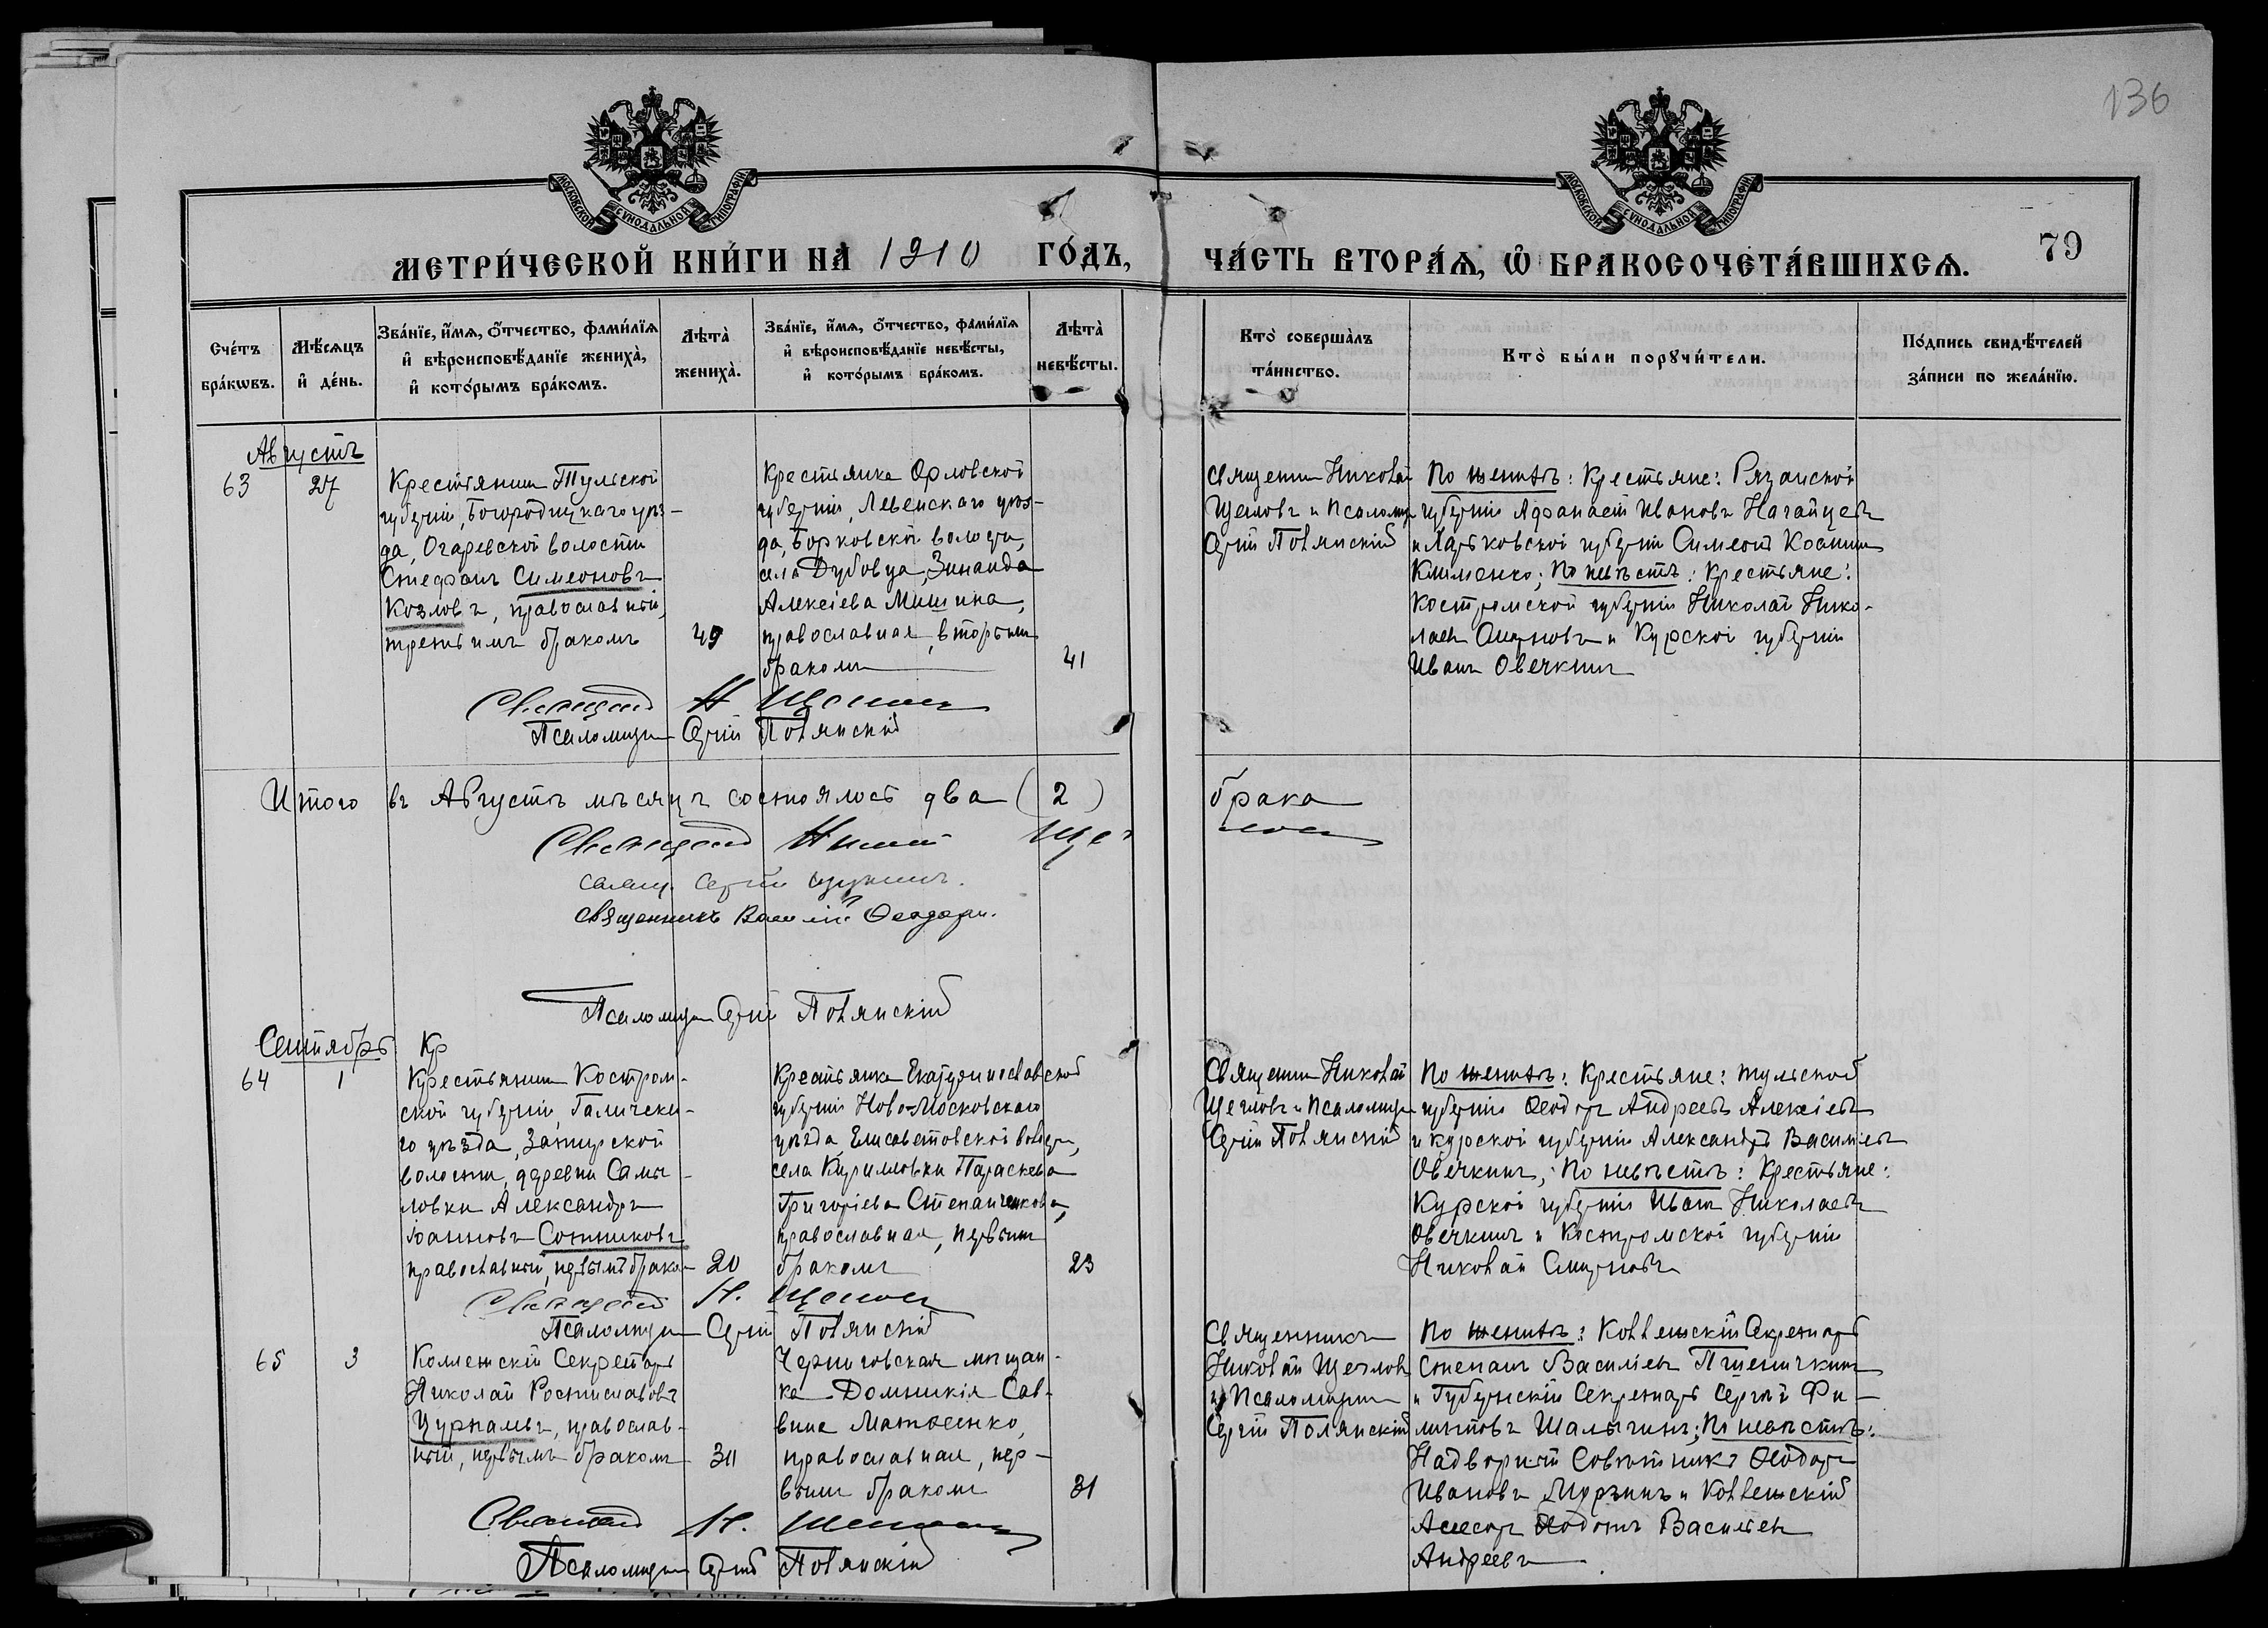 136
МОСКОВСКОЙ СУНОДАЛЬНОЙ ТИПОГРАФІИ
МОСКОВСКОЙ СУНОДАЛЬНОЙ ТИПОГРАФІИ
МЕТРИ́ЧЕСКОЙ КНИ́ГИ НА 1910 ГО́ДЪ,
ЧА́СТЬ ВТОРА́Ѧ, Ѽ БРАКОСОЧЕТА́ВШИХСѦ.
79
Сче́тъ бра́кѡвъ.
Мѣ́сѧцъ и҆ де́нь.
Зва́нїе, и҆́мѧ, ѻ҆́тчество, фами́лїѧ
и҆ вѣроисповѣ́данїе жениха̀,
и҆ кото́рымъ бра́комъ.
Лѣта̀ жениха̀.
Зва́нїе, и҆́мѧ, ѻ҆́тчество, фами́лїѧ
и҆ вѣроисповѣ́данїе невѣ́сты,
и҆ кото́рымъ бра́комъ.
Лѣта̀ невѣ́сты.
Кто̀ соверша̀лъ та́инство.
Кто̀ бы́ли порꙋчи́тели.
По́дпись свидѣ́телей
за́писи по жела́нїю.
Августъ
63
27
Крестьянин Тульской
губерніи, Богородицкаго уѣз-
да, Огаревской волости
Стефанъ Симеоновъ
Козловъ, православный,
третьимъ бракомъ
49
Крестьянка Орловской
губерніи, Ливенскаго уѣз-
да, Борковской волости,
села Дубовца, Зинаида
Алексіева Мишина,
православная, вторымъ
бракомъ
41
Священник Николай
Щегловъ и Псаломщ
Сергій Полянскій
По женихѣ: Крестьяне: Рязанской
губерніи Афанасій Ивановъ Нагайцевъ
и Харьковской губерніи Симеонъ Косьмин
Клименко; По невѣстѣ: Крестьяне:
Костромской губерніи Николай Нико-
лаев Смирновъ и Курской губерніи
Иванъ Овечкинъ
Священник Н Щеглов
Псаломщик Сергій Полянскій
Итого въ Августѣ мѣсяцѣ состоялось два (2) брака
Священник Николай Щеглов
Свящ. Сергій
Священникъ Василій
Псаломщик Сергій Полянскій
Сентябрь
Кр
64
1
Крестьянин Костром-
ской губерніи, Галическа-
го уѣзда,
волости, деревни Самы-
ловки Александръ
Іоанновъ Сотниковъ
православный, первымъ брако
20
Крестьянка Екатеринославской
губерніи Ново-Московскаго
уѣзда, Елисаветовской волости,
села Кирилловки Параскева
Григоріева Степанченкова,
православная, первымъ
бракомъ
23
Священник Николай
Щегловъ и Псаломщик
Сергій Полянскій
По женихѣ: Крестьяне: Тульской
губерніи Ѳеодоръ Андреевъ Алексіевъ
и Курской губерніи Александръ Васильев
Овечкинъ; По невѣстѣ: Крестьяне:
Курской губерніи Иванъ Николаевъ
Овечкинъ и Костромской губерніи
Николай Смирновъ
Священник Н. Щеглов
Псаломщик Сергій Полянскій
65
3
Коллежскій Секретарь
Николай Ростиславовъ
православ-
ный, первымъ бракомъ
Черниговская мѣщан-
ка Домникія Сав-
вина Матвеенко,
православная, пер-
вымъ бракомъ
31
Священникъ
Николай Щегловъ
и Псаломщик
Сергій Полянскій
По женихѣ: Коллежскій Секретарь
Степанъ Васильев Пшеничкин
и Губернскій Секретарь Сергѣй Фи-
липповъ Шалыгинъ; По невѣстѣ:
Надворный Совѣтникъ Ѳеодоръ
Ивановъ Мурзинъ и Коллежскій
Асессор Ѳеодоръ Васильев
Андреевъ
Священник Н. Щеглов
Псаломщик Сергій Полянскій